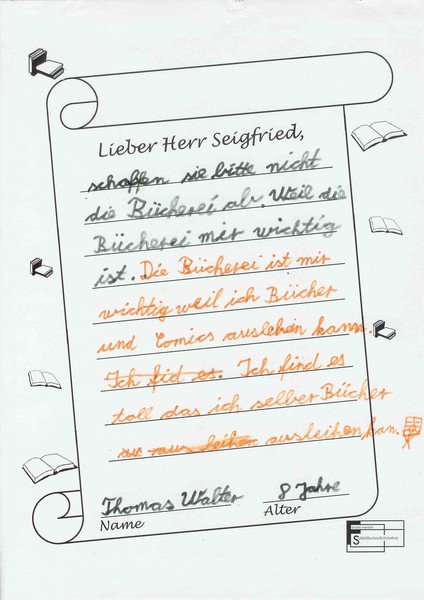 Lieber Herr Seigfried,
schaffen sie bitte nicht
die Bücherei ab. Weil die
Bücherei mir wichtig
ist. Die Bücherei ist mir
wichtig weil ich Bücher
und Comics auslehen kann.
Ich fid es. Ich find es
toll das ich selber Bücher
ausleihen kan.
Thomas Walter 8 Jahre
Name Alter